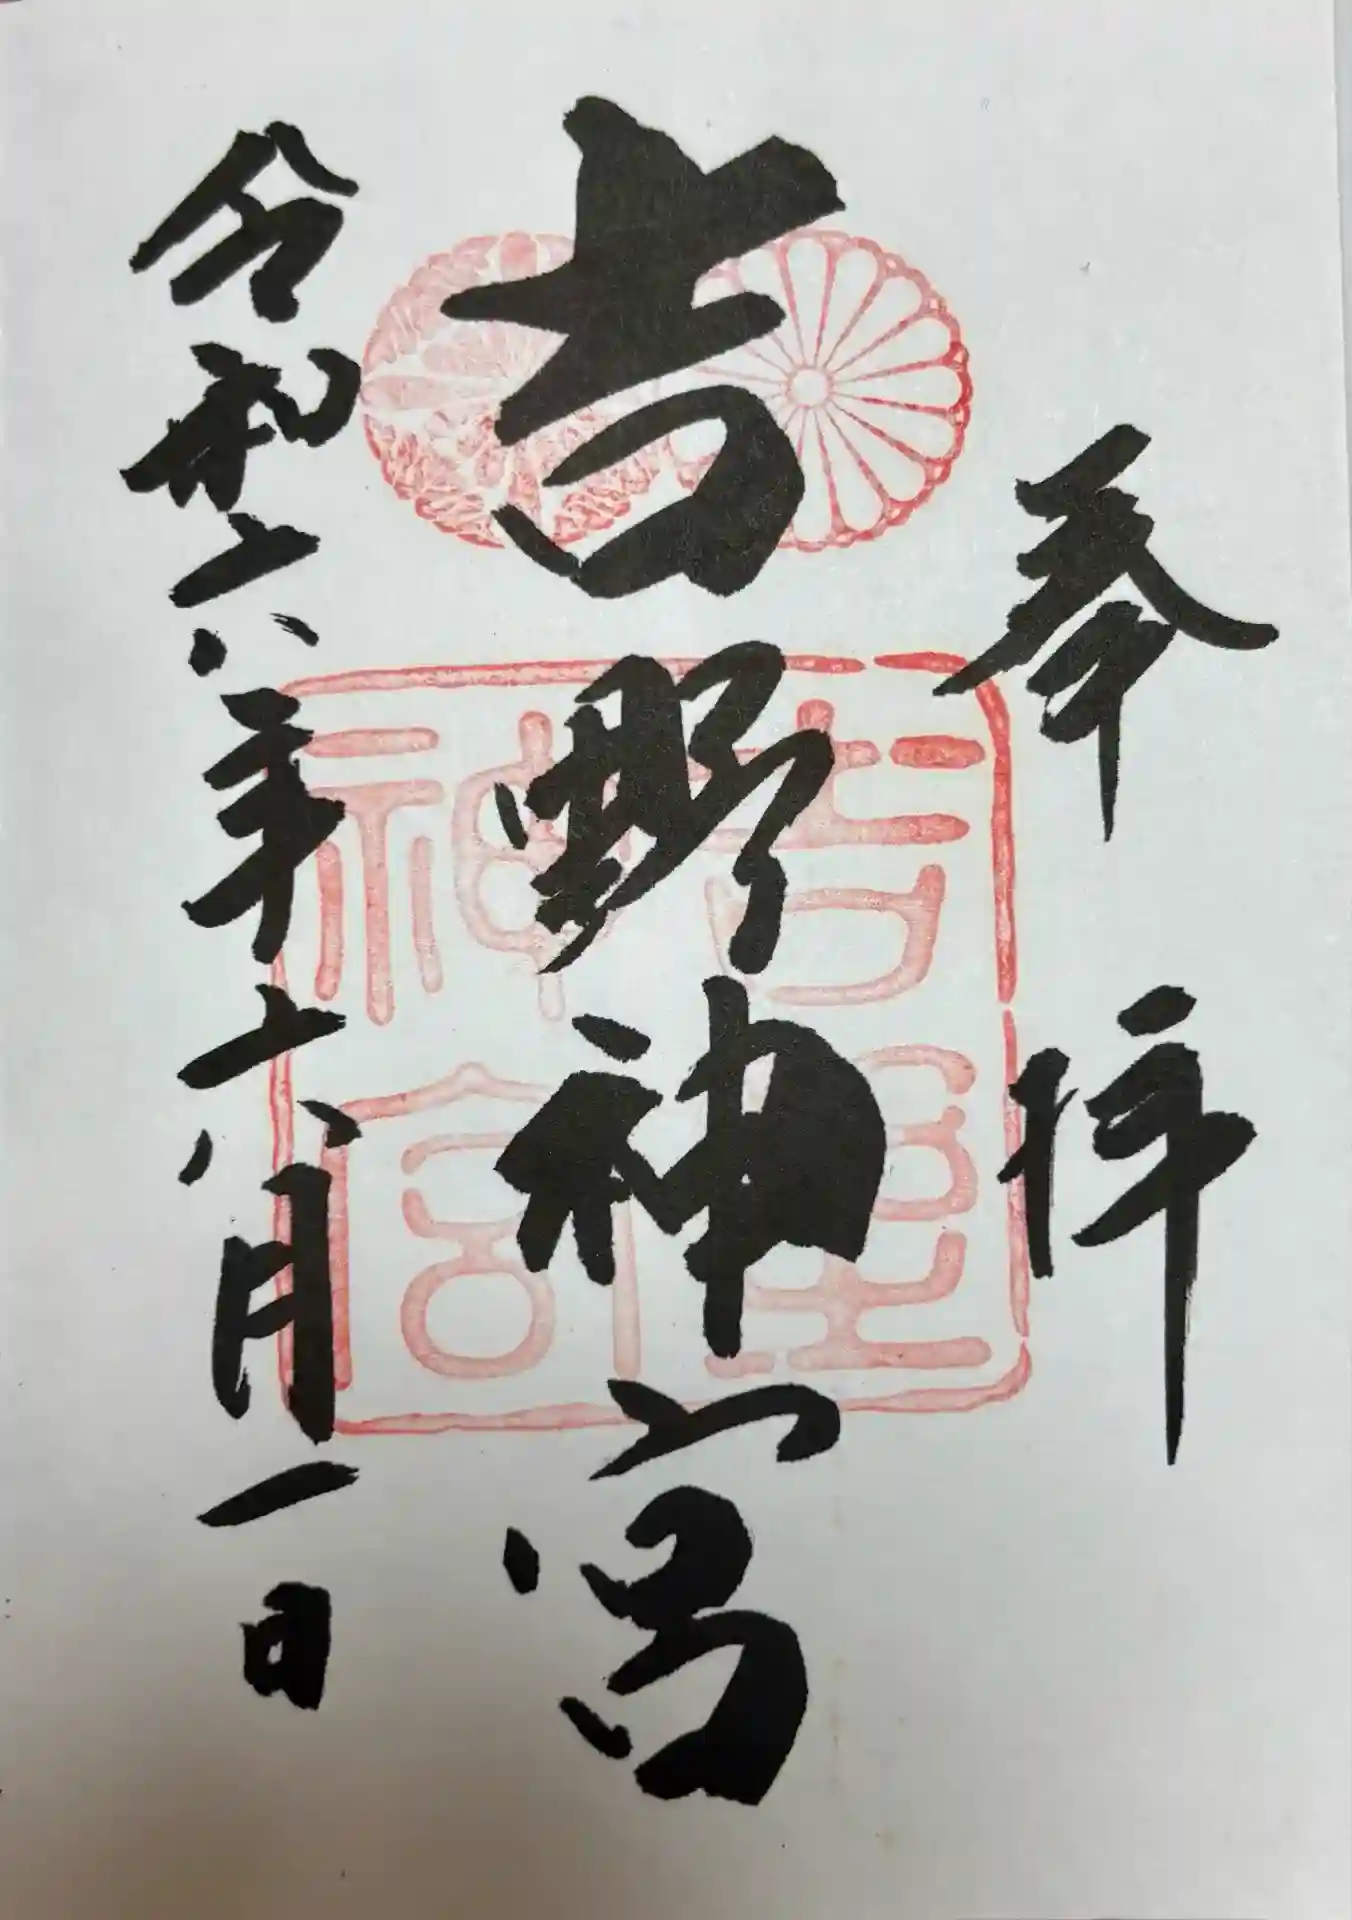 奉拝
吉野神宮
吉野神宮
令和六年六月一日